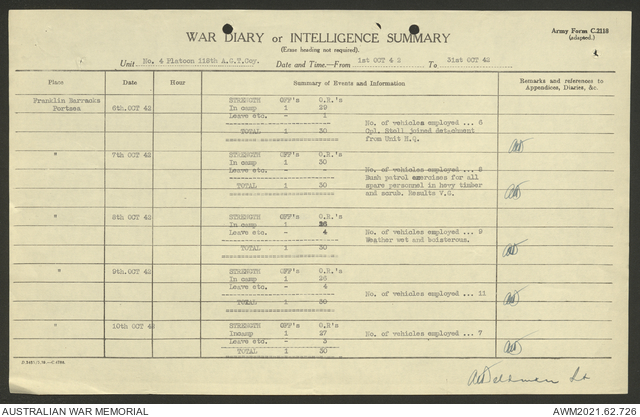 WAR DIARY or INTELLIGENCE SUMMARY
(Erase heading not required).
Army Form C.2118
(adapted.)
Unit No. 4 Platoon 118th A.G.T.Coy. Date and Time.—From 1st OCT 42 To 31st OCT 42
Place Date Hour Summary of Events and Information Remarks and references to
Appendices, Diaries, &c.
Franklin Barracks
Portsea 6th.OCT 42 STRENGTH OFF's O.R.'s
In camp 1 29
Leave etc. - 1 No. of vehicles employed ... 6
TOTAL 1 30 Cpl. Stoll joined detachment
from Unit H.Q.
" 7th OCT 42 STRENGTH OFF's O.R.'s
In camp 1 30
Leave etc. - - No. of vehicles employed ... 8
TOTAL 1 30 Bush patrol exercises for all
spare personnel in hevy timber
and scrub. Results V.G.
" 8th OCT 42 STRENGTH OFF's O.R.'s
In camp 1 26
Leave etc. - 4 No. of vehicles employed ... 9
TOTAL 1 30 Weather wet and boisterous.
" 9th.OCT 42 STRENGTH OFF's O.R.'s
In camp 1 26
Leave etc. - 4
TOTAL 1 30 No. of vehicles employed ... 11
" 10th OCT 42 STRENGTH OFF's O.R.'s
Incamp 1 27 No. of vehicles employed ... 7
Leave etc. - 3
TOTAL 1 30
Lt
AUSTRALIAN WAR MEMORIAL
AWM2021.62.726